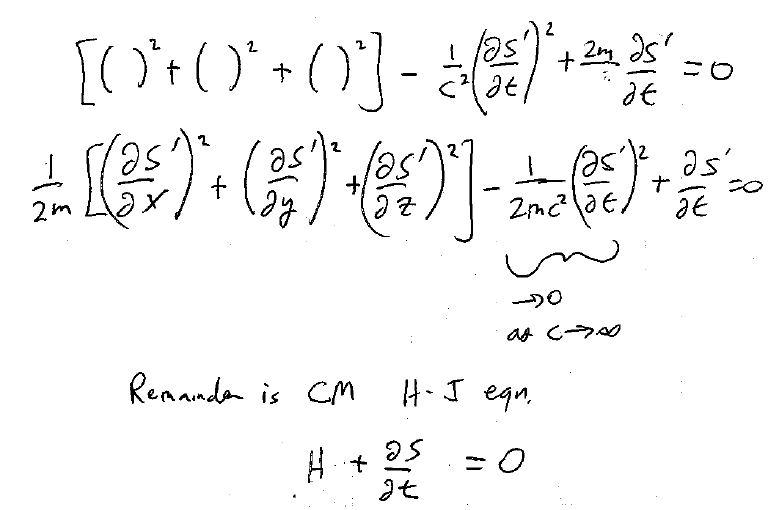 [( )² + ( )² + ( )²] - 1/c² (∂S'/∂t)² + 2m ∂S'/∂t = 0
1/2m [(∂S'/∂x)² + (∂S'/∂y)² + (∂S'/∂z)²] - 1/2mc² (∂S'/∂t)² + ∂S'/∂t = 0
→0
as c→∞
Remainder is CM H-J eqn.
H + ∂S/∂t = 0